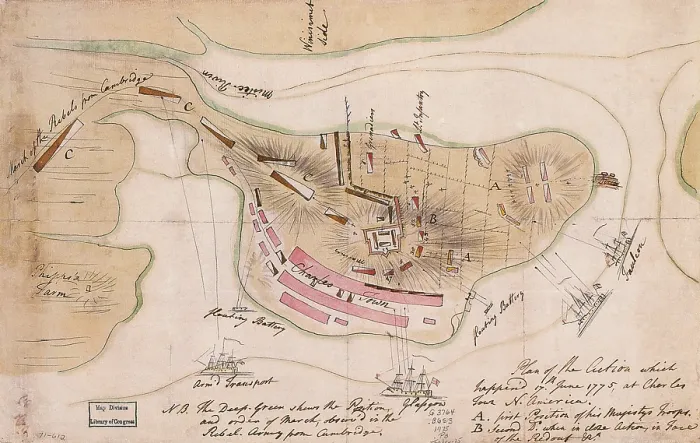 Winisimet
Side
Mistic River
March of the Rebels from Cambridge
C
C
C
Grenadiers
Lt. Infantry
A
B
A
Charles Town
Farm
Floating Battery
Floating Battery
Falcon
Arm'd Transport
Glasgow
Plan of the Action which
happen'd 17th June 1775, at Charles
Town N. America.
A. first Position of his Majestys Troops.
B. Second Do. when in close Action, in
of the Redoubt &c.
N.B. The Deep Green shews the Position,
and order of March, observed in the
Rebel Army from Cambridge.
Map Division
Library of Congress
G 3764